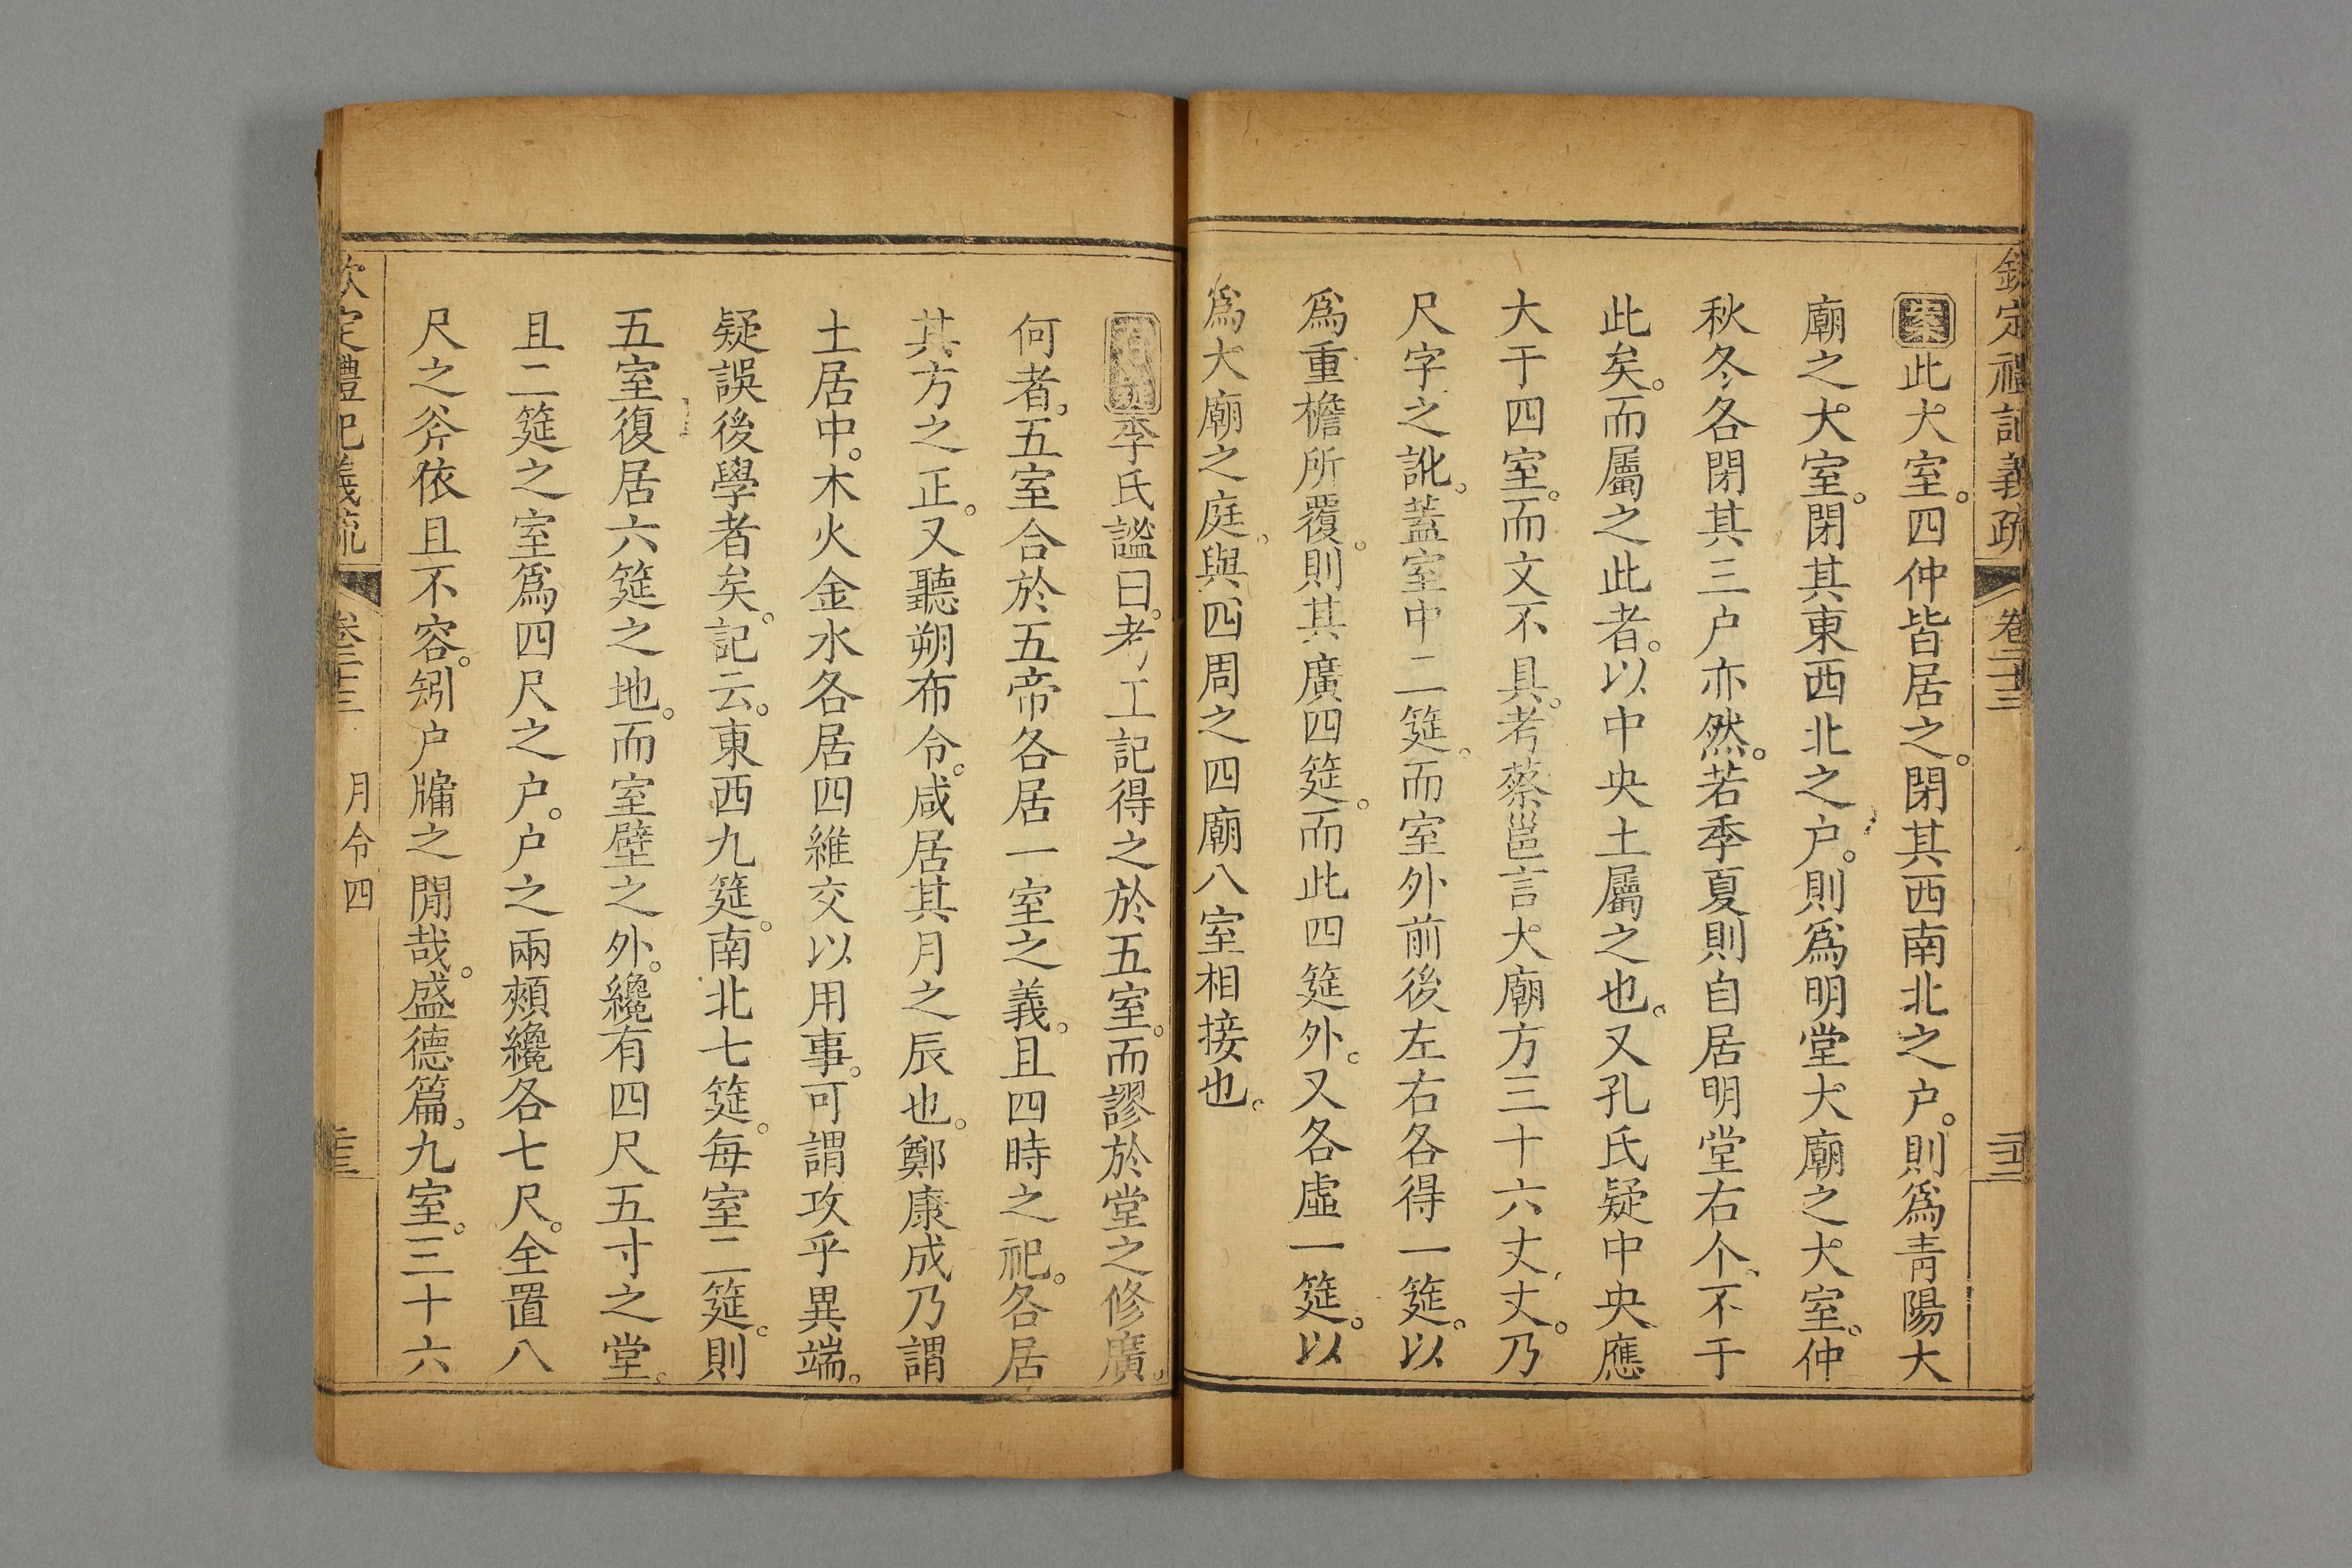 欽定禮記義疏 卷三十三
案此大室。四仲皆居之。閉其西南北之户。則爲青陽大
廟之大室。閉其東西北之户。則爲明堂大廟之大室。仲
秋冬各閉其三户亦然。若季夏則自居明堂右个、不于
此矣。而屬之此者。以中央土屬之也。又孔氏疑中央應
大于四室。而文不具。考蔡邕言大廟方三十六丈、丈。乃
尺字之訛。蓋室中二筵。而室外前後左右各得一筵。以
爲重檐所覆。則其廣四筵。而此四筵外。又各虛一筵。以
爲大廟之庭。與四周之四廟八室相接也。
李氏謐曰。考工記得之於五室。而謬於堂之修廣。
何者。五室合於五帝各居一室之義。且四時之祀。各居
其方之正。又聽朔布令。咸居其月之辰也。鄭康成乃謂
土居中。木火金水各居四維交以用事。可謂攻乎異端。
疑誤後學者矣。記云。東西九筵。南北七筵。每室二筵。則
五室復居六筵之地。而室壁之外。纔有四尺五寸之堂。
且二筵之室爲四尺之户。户之兩頰纔各七尺。全置八
尺之斧依且不容。矧户牖之閒哉。盛德篇。九室。三十六
欽定禮記義疏 卷三十三 月令四